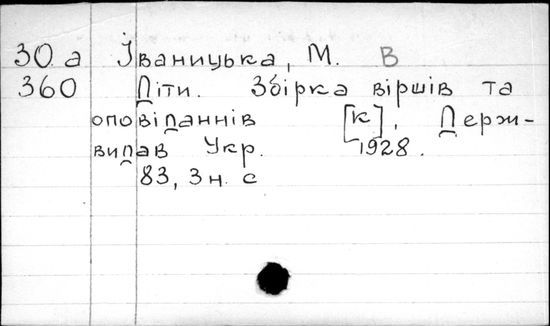 30 а Іваницька, М. В
360 Діти. Збірка віршів та
оповіданнів [К], Держ-
видав Укр. 1928.
83, 3 н. с